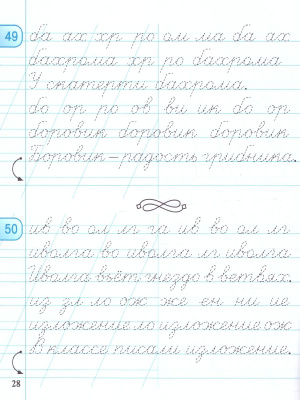 49
ба ах хр ро ом ма ба ах
бахрома хр ро бахрома
У скатерти бахрома.
бо ор ро ов ви ик бо ор
боровик боровик боровик
Боровик – радость грибника.
50
ив во ол лг га ив во ол лг
иволга во иволга лг иволга
Иволга вьёт гнездо в ветвях.
из зл ло ож же ен ни ие
изложение ло изложение ож
В классе писали изложение.
28